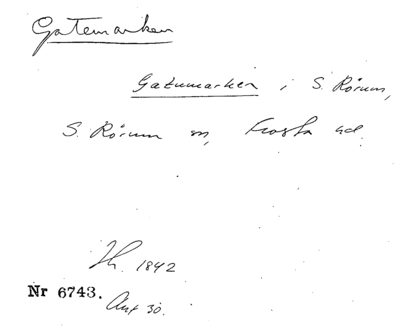 Gatemarken
Gatumarken i S. Rörum,
S. Rörum sn, Frosta hd.
Th. 1842
Nr 6743.
Auf 30.